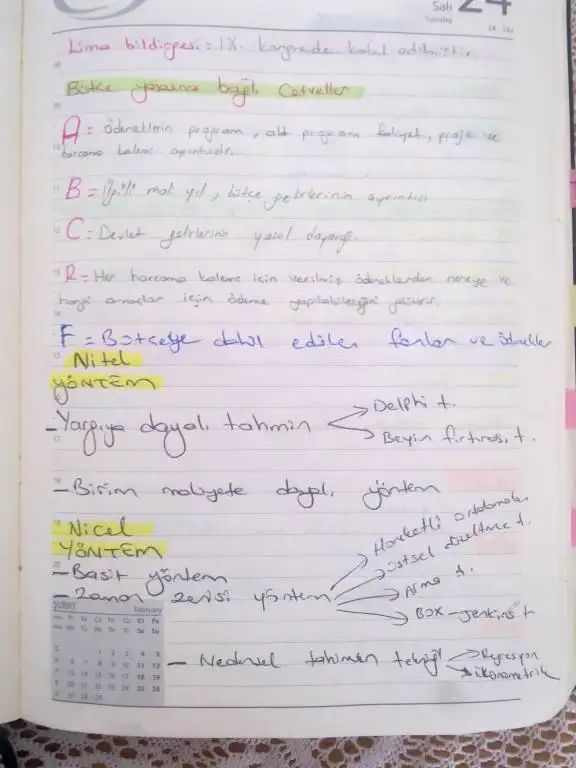 Salı 24
Tuesday
Lima bildirgesi = IX. kongrede kabul edilmiştir.
Bütçe yasasına bağlı Cetveller
A = Ödeneklerin program, alt program faliyet, proje ve
harcama kalemi ayrıntısıdır.
B = mali yıl, bütçe gelirlerinin ayrıntısı
C = Devlet gelirlerinin yasal dayanağı.
R = Her harcama kalemi için verilmiş ödeneklerden nereye ve
hangi amaçlar için ödeme yapılabileceğini gösterir.
F = Bütçeye dahil edilen fonlar ve ödenekler
Nitel
YÖNTEM
- Yargıya dayalı tahmin
Delphi t.
Beyin fırtınası t.
- Birim maliyete dayalı yöntem
Nicel
YÖNTEM
- Basit yöntem
- Zaman serisi yöntem
Hareketli ortalamalar
Üstsel düzeltme t.
Arma t.
BOX-jenkins t
ŞUBAT February
- Nedensel tahmin tekniği
Regresyon
ekonometrik